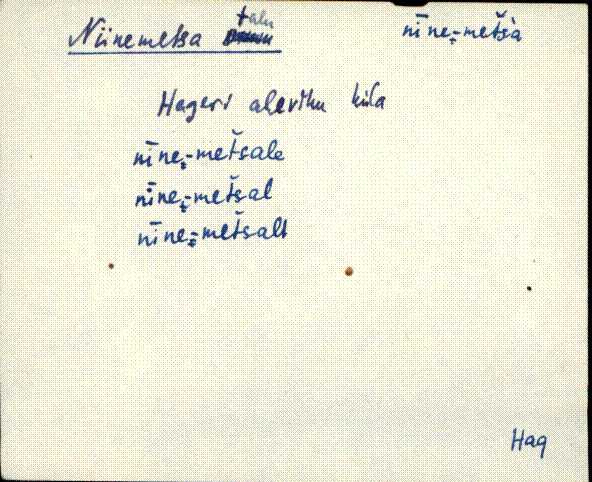 Niinemetsa talu
nīne˛-metšà
Hageri aleviku küla
nīne˛-metšale
nīne˛-metšal
nīne˛-metšalt
Hag